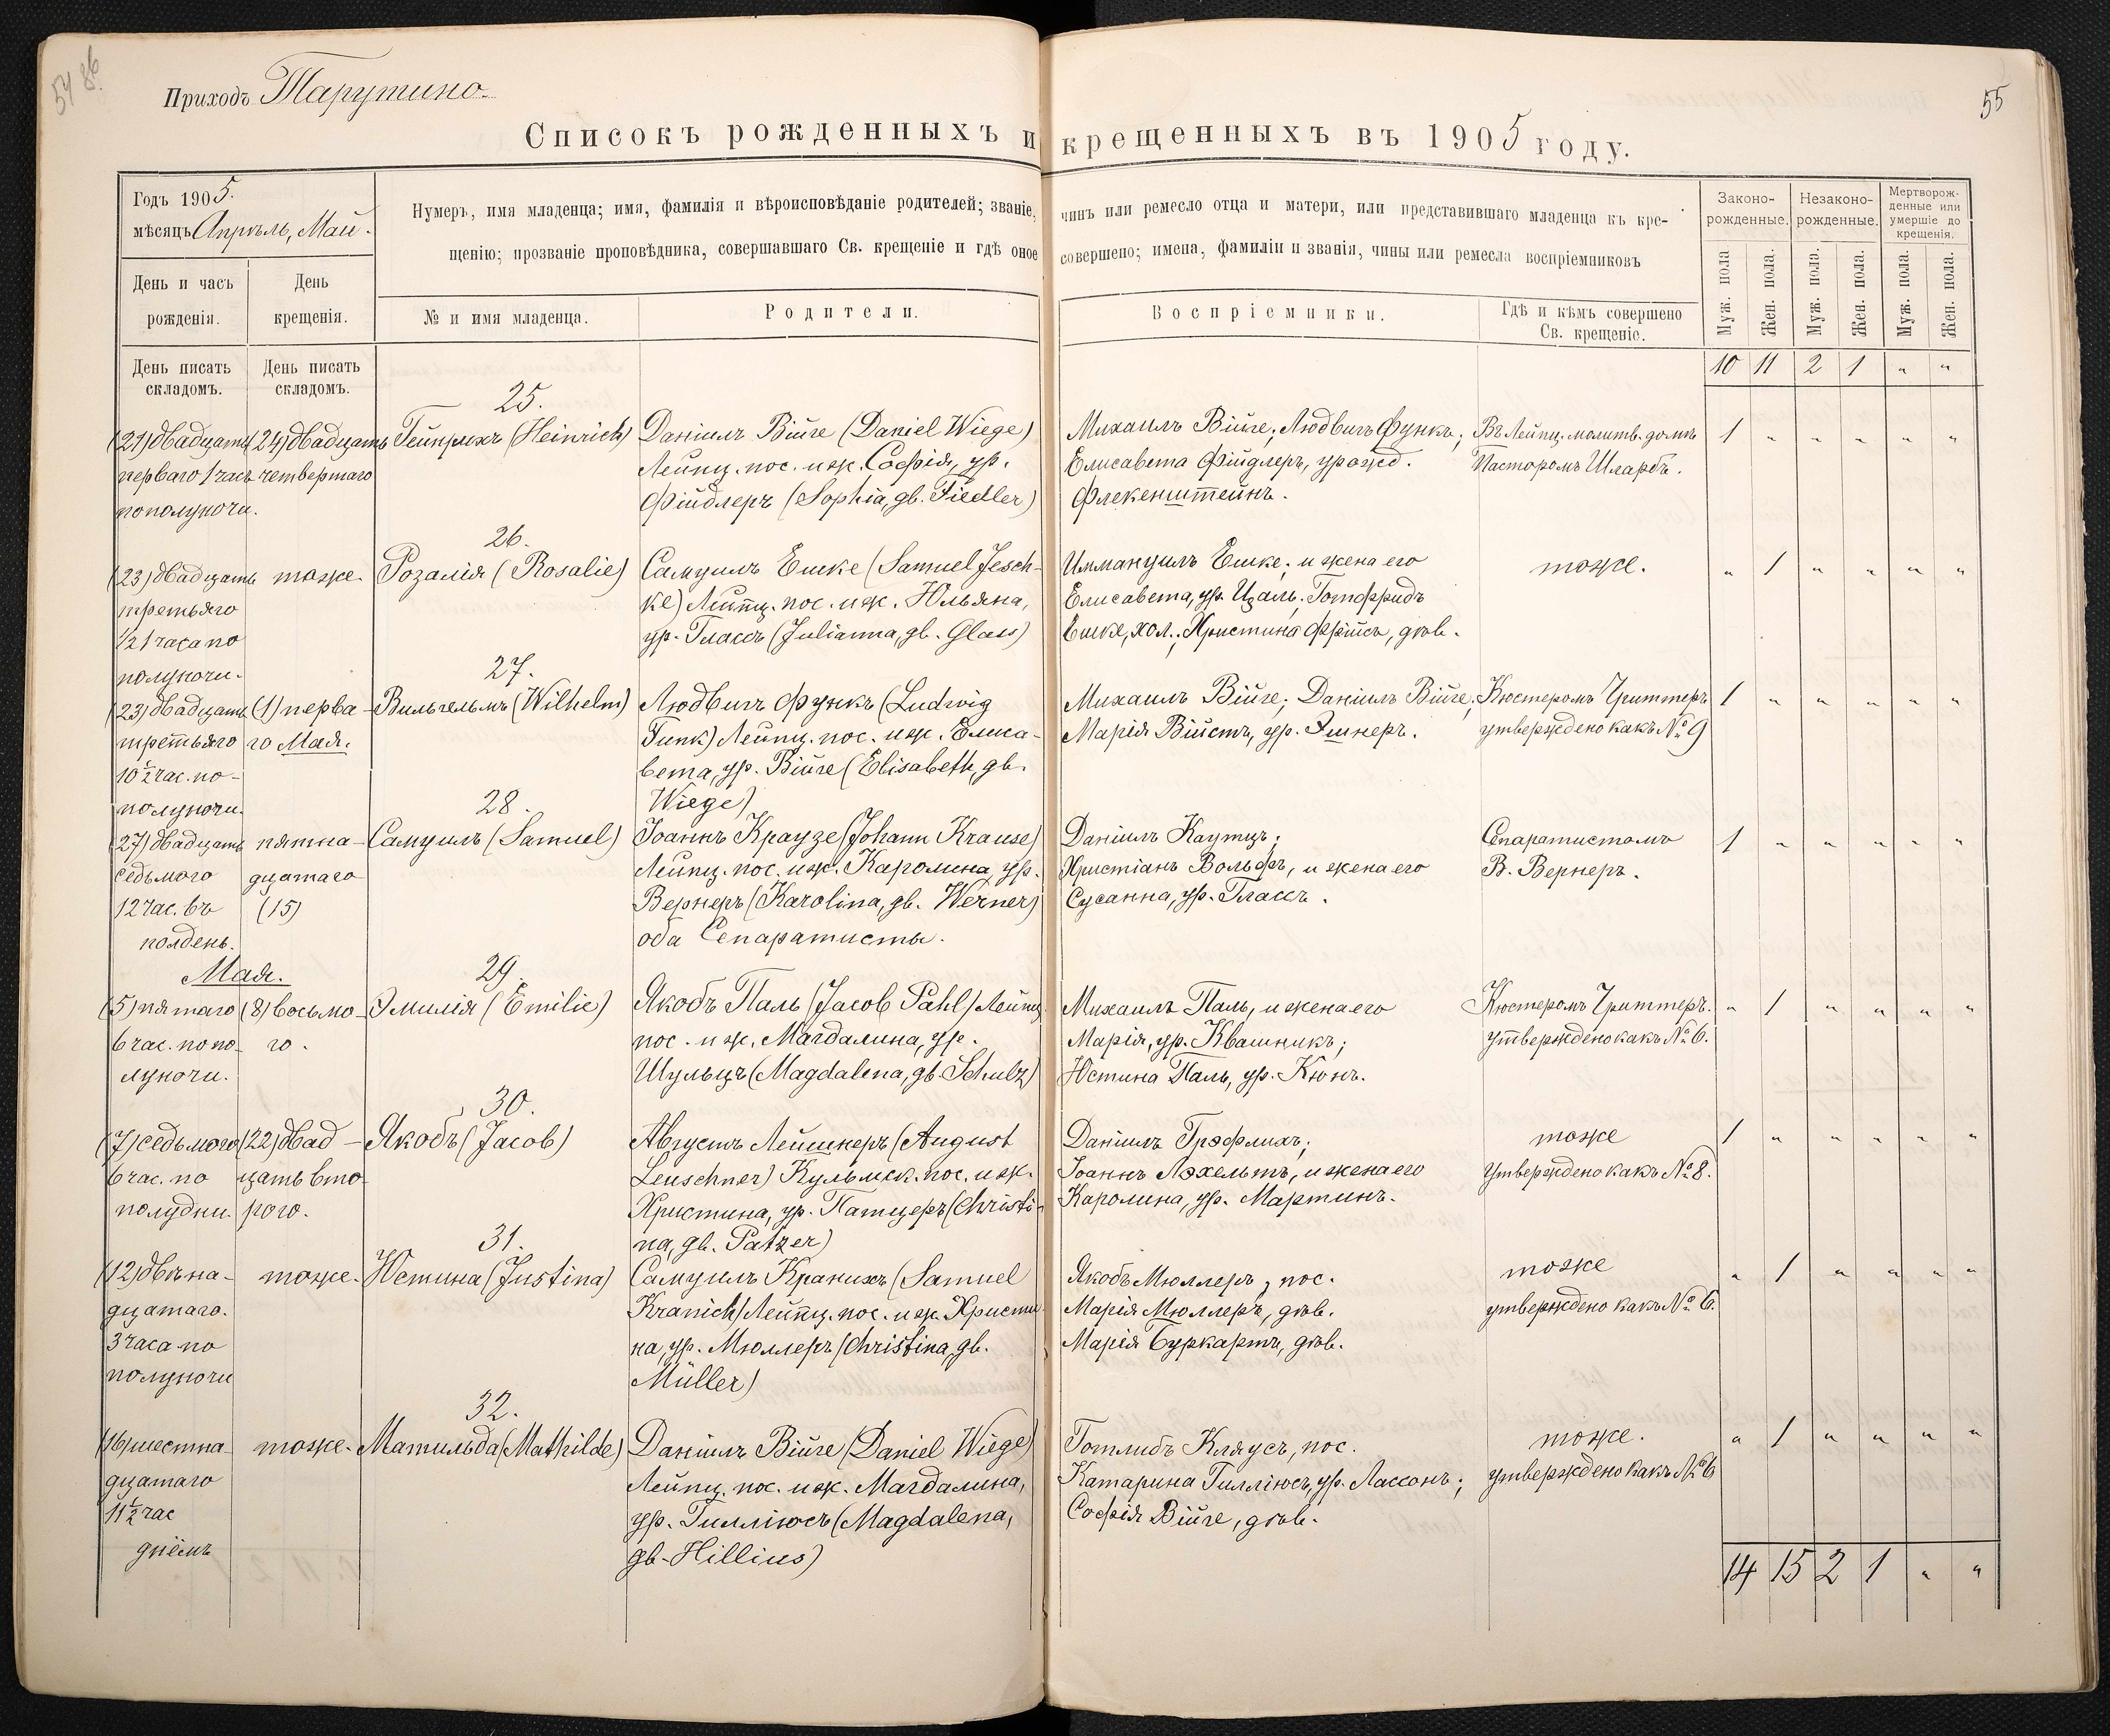 54 86.
55
Приходъ Тарутино.
Списокъ рожденныхъ и крещенныхъ въ 1905 году.
Годъ 1905.
мѣсяцъ Апрѣль, Май.
Нумеръ, имя младенца; имя, фамилія и вѣроисповѣданіе родителей; званіе, чинъ или ремесло отца и матери, или представившаго младенца къ кре-
щенію; прозваніе проповѣдника, совершавшаго Св. крещеніе и гдѣ оное совершено; имена, фамиліи и званія, чины или ремесла воспріемниковъ
Законо-
рожденные.
Незаконо-
рожденные.
Мертворож-
денные или
умершіе до
крещенія.
День и часъ
рожденія.
День
крещенія.
№ и имя младенца.
Родители.
Воспріемники.
Гдѣ и кѣмъ совершено
Св. крещеніе.
Муж. пола
Жен. пола.
Муж. пола.
Жен. пола.
Муж. пола.
Жен. пола.
День писать
складомъ.
День писать
складомъ.
10 11 2 1 " "
25.
(21) двадцать
перваго 1 часъ
пополуночи.
(24) двадцать
четвертаго
Гейнрихъ (Heinrich)
Даніилъ Війге (Daniel Wiege)
Лейпц. пос. и ж. Софія, ур.
Фійдлеръ (Sophia, gb. Fiedler)
Михаилъ Війге; Людвигъ Функъ;
Елисавета Фійдлеръ, урожд.
Флекенштейнъ.
Въ Лейпц. молитв. домѣ
Пасторомъ Шларбъ.
1 " " " " "
26.
(23) двадцать
третьяго
1/2 1 часа по
полуночи.
тоже.
Розалія (Rosalie)
Самуилъ Ешке (Samuel Jesch-
ke) Лейпц. пос. и ж. Юльяна,
ур. Глассъ (Julianna, gb. Glass)
Иммануилъ Ешке; и жена его
Елисавета, ур. Цаль; Готфридъ
Ешке, хол.; Христина Фрійсъ, дѣв.
тоже.
" 1 " " " "
27.
(23) двадцать
третьяго
10 1/2 час. по-
полуночи.
(1) перва-
го Мая.
Вильгельмъ (Wilhelm)
Людвигъ Функъ (Ludwig
Funk) Лейпц. пос. и ж. Елиса-
вета, ур. Війге (Elisabeth, gb.
Wiege)
Михаилъ Війге; Даніилъ Війге;
Марія Війстъ, ур. Эшнеръ.
Кюстеромъ Гриттеръ
утверждено какъ № 9
1 " " " " "
28.
(27) двадцать
седьмого
12 час. въ
полдень.
пятна-
дцатаго
(15)
Самуилъ (Samuel)
Іоаннъ Краузе (Johann Krause)
Лейпц. пос. и ж. Каролина, ур.
Вернеръ (Karolina, gb. Werner)
оба Сепаратисты.
Даніилъ Каутцъ;
Христіанъ Вольфъ, и жена его
Сусанна, ур. Глассъ.
Сепаратистомъ
В. Вернеръ.
1 " " " " "
Мая.
29.
(5) пятаго
6 час. по по-
луночи.
(8) восьмо-
го.
Эмилія (Emilie)
Якобъ Паль (Jacob Pahl) Лейпц.
пос. и ж. Магдалина, ур.
Шульцъ (Magdalena, gb. Schulz)
Михаилъ Паль, и жена его
Марія, ур. Квашникъ;
Юстина Паль, ур. Кюнъ.
Кюстеромъ Гриттеръ.
утверждено какъ № 6.
" 1 " " " "
30.
(7) седьмого
6 час. по
полудни.
(22) двад-
цать вто-
рого.
Якобъ (Jacob)
Августъ Лейшнеръ (August
Leuschner) Кульмск. пос. и ж.
Христина, ур. Патцеръ (Christi-
na, gb. Patzer)
Даніилъ Грэфлихъ;
Іоаннъ Лэхельтъ, и жена его
Каролина, ур. Мартинъ.
тоже
Утверждено какъ № 8.
1 " " " " "
31.
(12) двѣна-
дцатаго.
3 часа по
полуночи
тоже.
Юстина (Justina)
Самуилъ Кранихъ (Samuel
Kranich) Лейпц. пос. и ж. Христи-
на, ур. Мюллеръ (Christina, gb.
Müller)
Якобъ Мюллеръ, пос.
Марія Мюллеръ, дѣв.
Марія Буркартъ, дѣв.
тоже
утверждено какъ № 6.
" 1 " " " "
32.
(16) шестна-
дцатаго
11 1/2 час
днёмъ
тоже.
Матильда (Mathilde)
Даніилъ Війге (Daniel Wiege)
Лейпц. пос. и ж. Магдалина,
ур. Гилліюсъ (Magdalena,
gb. Hillius)
Готлибъ Кляусъ, пос.
Катарина Гилліюсъ, ур. Лассонъ;
Софія Війге, дѣв.
тоже.
утверждено какъ № 6
" 1 " " " "
14 15 2 1 " "